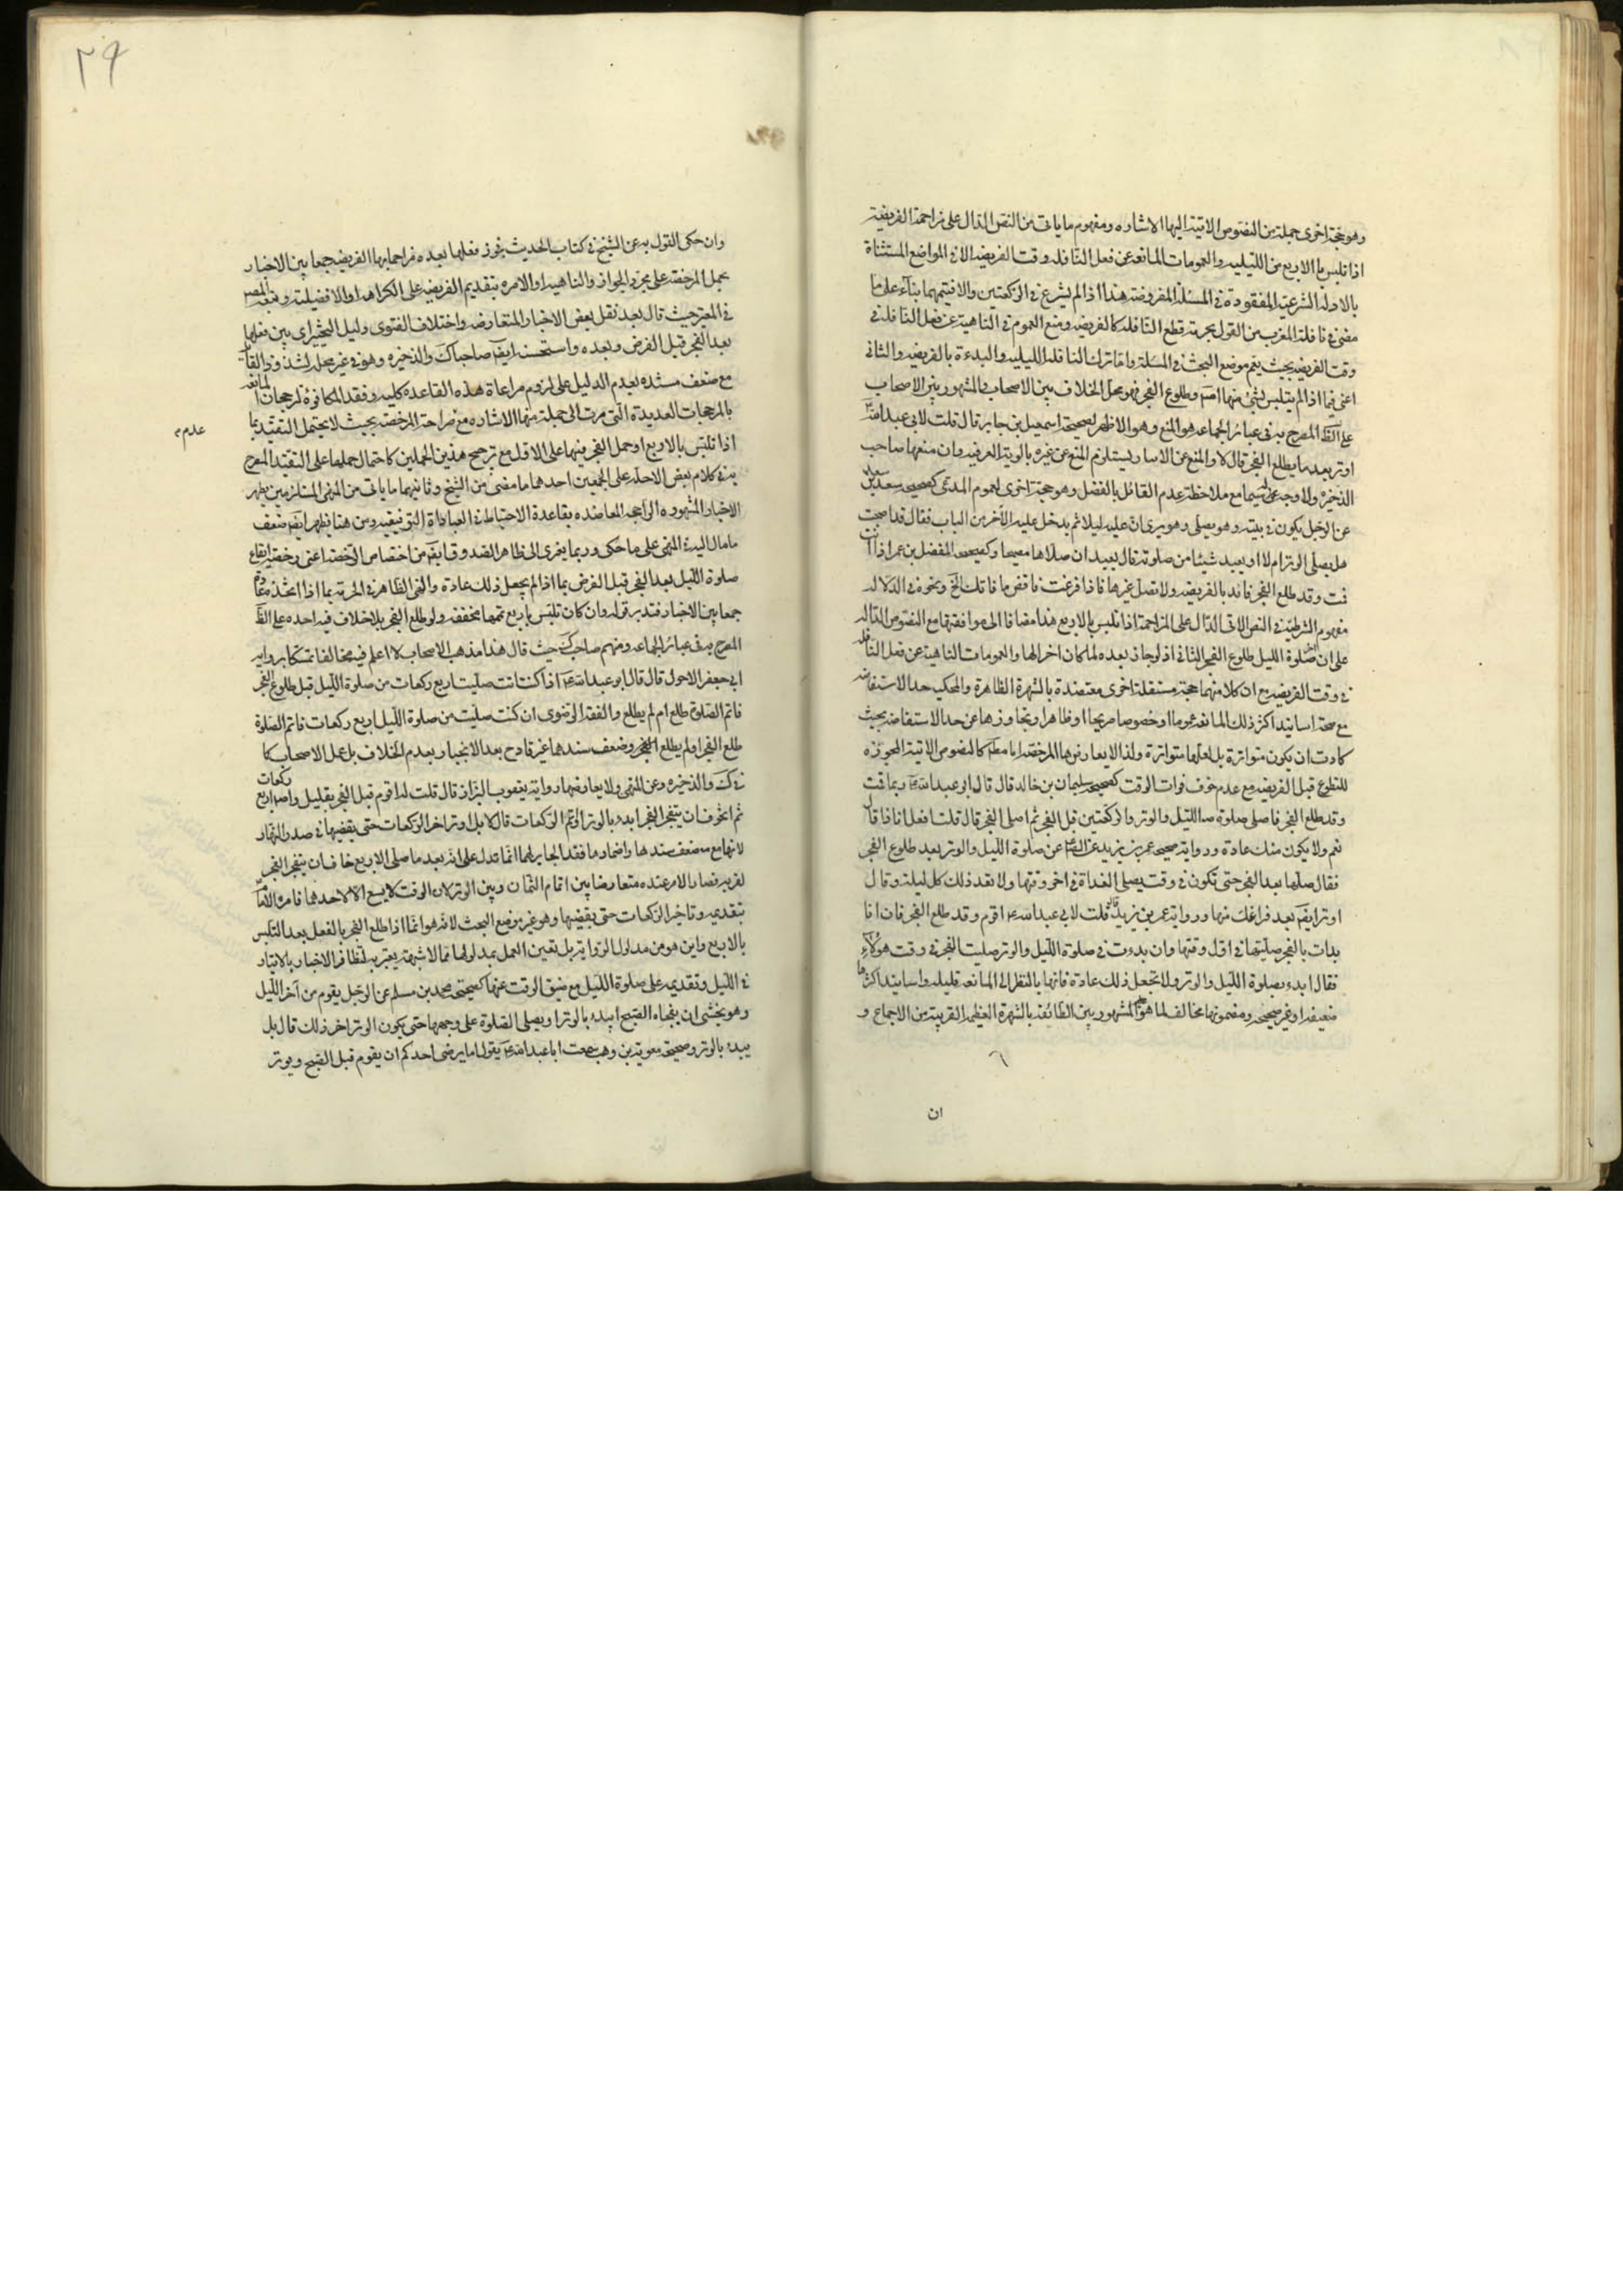 وهو حجة اخرى جملة من النصوص الاتية اليها الاشاره ومفهوم ما ياتى من النص الدال على مزاحمة الفريضة
اذا تلبس بالاربع من الليليه والعمومات المانعة عن فعل النافله وقت الفريضه الا فى المواضع المستثناة
بالادله الشرعية المفقودة فى المسئلة المفروضة هذا اذا لم يشرع فى الركعتين والا فيتمهما بناء على ما
مضى فى نافلة المغرب من القول بحرمة قطع النافله كالفريضه ومنع العموم فى الناهية عن فعل النافلة فى
وقت الفريضه بحيث يعم موضع البحث فى المسئلة واما ترك النافله الليليه والبدءة بالفريضه والثانى
اعنى فيما اذا لم يتلبس بشئ منها اصلا وطلوع الفجر فهو محل الخلاف بين الاصحاب فالمشهور بين الاصحاب
على الظ المصرح به فى عباير الجماعه هو المنع وهو الاظهر لصحيحة اسمعيل بن جابر قال قلت لابى عبد الله ع
اوتر بعد ما يطلع الفجر قال لا والمنع عن الايتار يستلزم المنع عن غيره بالاولوية العرفيه وان منعها صاحب
الذخيره ولا وجه له سيما مع ملاحظة عدم القائل بالفصل وهو حجة اخرى لعموم المدعى كصحيحه سعد بن
عن الرجل يكون فى بيته وهو يصلى وهو يرى ان عليه ليلا ثم يدخل عليه الاخر من الباب فقال قد اصبحت
هل يصلى الوتر ام لا او يعيد شيئا من صلوته قال يعيد ان صلاها مصبحا وكصحيحه المفضل بن عمر اذا انت
قمت وقد طلع الفجر فابدء بالفريضه ولا تصل غيرها فاذا فرغت فاقض ما فاتك الخ ونحوه فى الدلاله
مفهوم الشرطية فى النص الاتى الدال على المزاحمة اذا تلبس بالاربع هذا مضافا الى موافقتها مع النصوص الداله
على ان اخر صلوة الليل طلوع الفجر الثانى اذ لو جاز بعده لما كان اخرا لها والعمومات الناهية عن فعل النافله
فى وقت الفريضه مع ان كلا منهما حجة مستقلة اخرى معتضدة بالشهرة الظاهرة والمحكيه حد الاستفاضه
مع صحة اسانيد اكثر ذلك المانعه عموما او خصوصا صريحا او ظاهرا وتجاوزها عن حد الاستفاضه بحيث
كادت ان يكون متواترة بل لعلها متواترة ولذا لا يعارضها المرخصه اما مطلقا كالنصوص الاتية المجوزه
للتطوع قبل الفريضه مع عدم خوف فوات الوقت كصحيحه سليمان بن خالد قال قال ابو عبد الله ع ربما قمت
وقد طلع الفجر فاصلى صلوة الليل والوتر والركعتين قبل الفجر ثم اصلى الفجر قال قلت افعل انا ذا قال
نعم ولا يكون منك عادة ورواية صحيحه عمر بن يزيد عن الص ع عن صلوة الليل والوتر بعد طلوع الفجر
فقال صلها بعد الفجر حتى تكون فى وقت يصلى الغداة فى اخر وقتها ولا تعد ذلك كل ليلة وقال
اوتر ايضا بعد فراغك منها ورواية عمر بن يزيد قال قلت لابى عبد الله ع اقوم وقد طلع الفجر فان انا
بدات بالفجر صليتها فى اول وقتها وان بدءت فى صلوة الليل والوتر صليت الفجر فى وقت هؤلاء
فقال ابدء بصلوة الليل والوتر ولا تجعل ذلك عادة فانها بالنظر الى المانعه قليله واسانيد اكثرها
ضعيفه او غير صحيحه ومضمونها مخالف لما هو المشهور بين الطائفه بالشهرة العظيمه القريبة من الاجماع و
ان
٢٩
وان حكى القول به عن الشيخ فى كتاب الحديث بجوز فعلها بعده مزاحما بها الفريضه جمعا بين الاخبار
بحمل المرخصة على مجرد الجواز والناهيه او الامره بتقديم الفريضه على الكراهه او الافضلية وتبعه المصر
فى المعتبر حيث قال بعد نقل بعض الاخبار المتعارضه واختلاف الفتوى دليل التخيير اى بين فعلها
بعد الفجر قبل الفرض وبعده واستحسنه ايضا صاحباك والذخيره وهو فى غير محله لشذوذ القائل
مع ضعف مستنده لعدم الدليل على لزوم مراعاة هذه القاعده كليه وفقد المكافوة لرجحان المانعه
بالمرجحات العديدة التى مرت الى جملة منها الاشاره مع صراحة المرخصة بحيث لا يحتمل التقييد بما
عدم م
اذا تلبس بالاربع او حمل الفجر فيها على الاول مع ترجيح هذين الحملين كاحتمال حملها على التقييد المصرح
به فى كلام بعض الاجله على الجمعين احدهما ما مضى من الشيخ وثانيهما ما ياتى من المنهى المستلزمين لطرح
الاخبار المشهوره الراجحه المعاضده بقاعدة الاحتياط فى العبادة التوقيفيه ومن هنا يظهر ايضا ضعف
ما مال اليه فى المنهى على ما حكى وربما يعزى الى ظاهر الصدوق ايضا من اختصاص الرخصه اعنى رخصه ايقاع
صلوة الليل بعد الفجر قبل الفرض بما اذا لم يجعل ذلك عادة والنهى الظاهر فى الحرمة بما اذا اتخذه عادة
جمعا بين الاخبار فتدبر قوله وان كان تلبس باربع تممها مخففه ولو طلع الفجر بلا خلاف فيه اجده على الظ
المصرح به فى عباير الجماعه ومنهم صاحب ك حيث قال هذا مذهب الاصحاب لا اعلم فيه مخالفا تمسكا برواية
ابى جعفر الاحول قال قال ابو عبد الله ع اذا كنت انت صليت اربع ركعات من صلوة الليل قبل طلوع الفجر
فاتم الصلوة طلع ام لم يطلع والفقه الرضوى ان كنت صليت من صلوة الليل اربع ركعات فاتم الصلوة
طلع الفجر او لم يطلع الفجر وضعف سندهما غير قادح بعد الانجبار بعدم الخلاف بل عمل الاصحاب كما
فى ك والذخيره وعن المنهى ولا يعارضهما رواية يعقوب البزاز قال قلت له اقوم قبل الفجر بقليل واصلى اربع ركعات
ثم اتخوف ان ينفجر الفجر ابدء بالوتر او اتم الركعات قال لا بل اوتر واخر الركعات حتى يقضيها فى صدر النهار
لانها مع ضعف سندها واضمارها وفقد الجابر لهما انما تدل على انه بعد ما صلى الاربع خاف ان ينفجر الفجر
لقربه فصار الامر عنده متعارضا بين اتمام الثمان وبين الوتر لان الوقت لا يسع الا لاحدهما فامره الامام
بتقديمه وتاخير الركعات حتى يقضيها وهو غير موضع البحث لانه هو انما اذا طلع الفجر بالفعل بعد التلبس
بالاربع واين هو من مدلول الرواية بل تعين العمل بمدلولها مما لا شبهة يعتريه لتظافر الاخبار بالايتار
فى الليل وتقديمه على صلوة الليل مع ضيق الوقت عنها كصحيحة محمد بن مسلم عن الرجل يقوم من آخر الليل
وهو يخشى ان يفجاه الصبح ايبدء بالوتر او يصلى الصلوة على وجهها حتى يكون الوتر اخر ذلك قال بل
يبدء بالوتر وصحيحة معوية بن وهب سمعت ابا عبد الله ع يقول اما يرضى احدكم ان يقوم قبل الصبح ويوتر